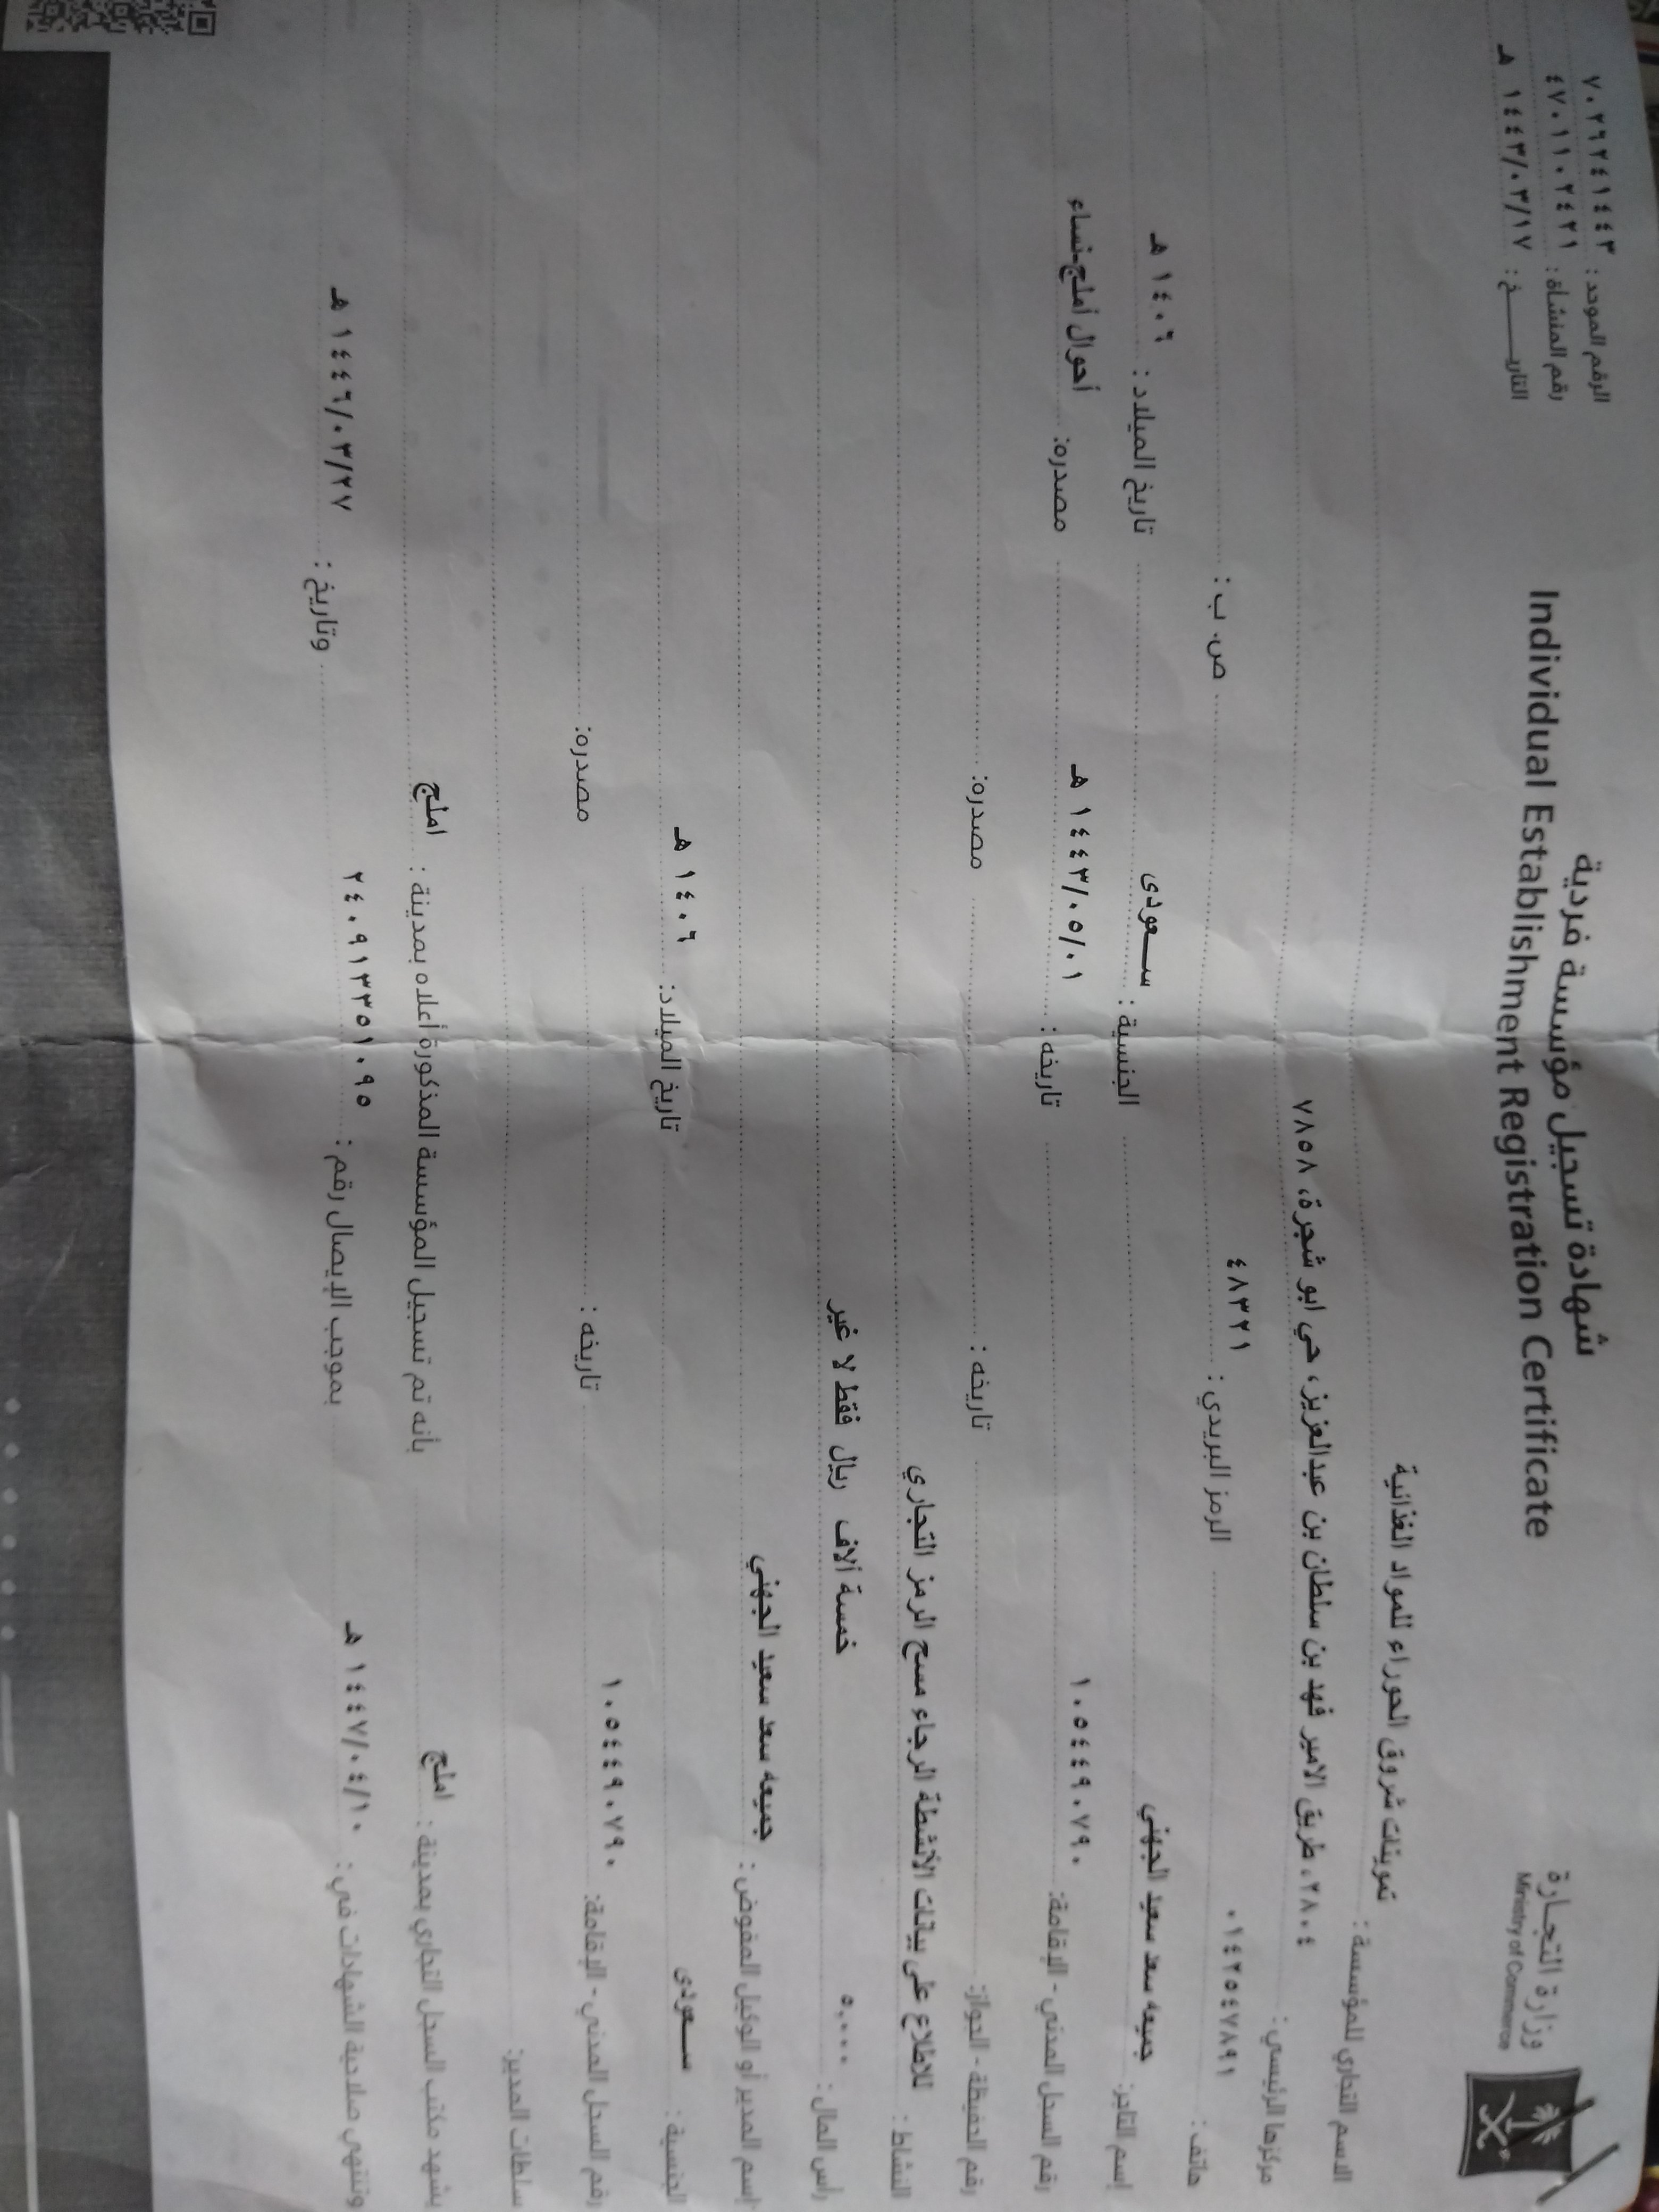 وزارة التجارة
Ministry of Commerce
شهادة تسجيل مؤسسة فردية
Individual Establishment Registration Certificate
الرقم الموحد : ٧٠٢٦٢٤١٤٤٣
رقم المنشأة : ٤٧٠١١٠٢٤٢١
التاريـــــخ : ١٤٤٣/٠٣/١٧ هـ
الاسم التجاري للمؤسسة : تموينات شروق الحوراء للمواد الغذائية
مركزها الرئيسي : ٢٨٠٤، طريق الامير فهد بن سلطان بن عبدالعزيز، حي ابو شجرة، ٧٨٥٨
هاتف : ٠١٤٢٥٤٧٨٩١ الرمز البريدي : ٤٨٣٢١ ص. ب :
إسم التاجر: جميعه سعد سعيد الجهني الجنسية : سـعودى تاريخ الميلاد : ١٤٠٦ هـ
رقم السجل المدني - الإقامة: ١٠٥٤٤٩٠٧٩٠ تاريخه : ١٤٤٣/٠٥/٠١ هـ مصدره: أحوال أملج-نساء
رقم الحفيظة - الجواز: تاريخه : مصدره:
النشاط : للاطلاع على بيانات الأنشطة الرجاء مسح الرمز التجاري
رأس المال : ٥,٠٠٠ خمسة آلاف ريال فقط لا غير
إسم المدير أو الوكيل المفوض : جميعه سعد سعيد الجهني
الجنسية : سـعودى تاريخ الميلاد: ١٤٠٦ هـ
رقم السجل المدني - الإقامة: ١٠٥٤٤٩٠٧٩٠ تاريخه : مصدره:
سلطات المدير:
يشهد مكتب السجل التجاري بمدينة : املج بأنه تم تسجيل المؤسسة المذكورة أعلاه بمدينة : املج
وتنتهي صلاحية الشهادات في : ١٤٤٧/٠٤/١٠ هـ بموجب الإيصال رقم : ٢٤٠٩١٣٣٥١٠٩٥ وتاريخ : ١٤٤٦/٠٣/٢٧ هـ